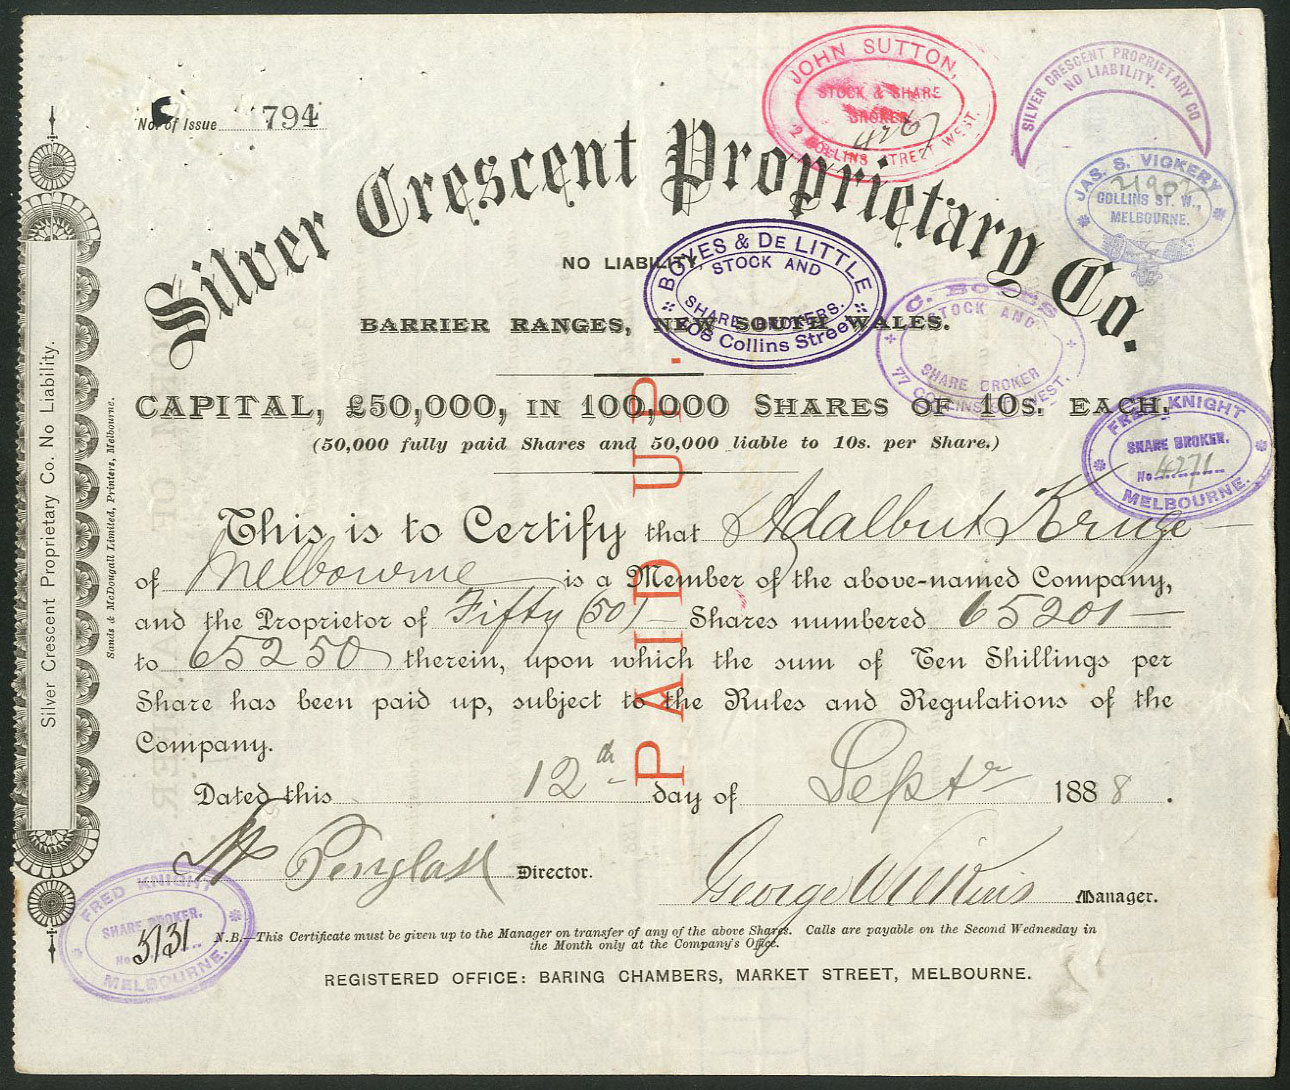 No. of Issue 794
JOHN SUTTON,
STOCK & SHARE
BROKER
4267
2 COLLINS STREET WEST.
SILVER CRESCENT PROPRIETARY CO
NO LIABILITY.
JAS. S. VICKERY
COLLINS ST. W.,
MELBOURNE.
Silver Crescent Proprietary Co.
NO LIABILITY,
BOYES & DE LITTLE
STOCK AND
SHARE BROKERS.
Collins Street
C. BOYES
STOCK AND
SHARE BROKER
77 COLLINS ST WEST.
BARRIER RANGES, NEW SOUTH WALES.
CAPITAL, £50,000, IN 100,000 SHARES OF 10s. EACH.
(50,000 fully paid Shares and 50,000 liable to 10s. per Share.)
FRED KNIGHT
SHARE BROKER.
No 4271
MELBOURNE.
PAID UP.
This is to Certify that Adalbert Kruge
of Melbourne is a Member of the above-named Company,
and the Proprietor of Fifty (50) Shares numbered 65201
to 65250 therein, upon which the sum of Ten Shillings per
Share has been paid up, subject to the Rules and Regulations of the
Company.
Dated this 12th day of Septr 1888.
Director.
George Manager.
FRED KNIGHT
SHARE BROKER.
No 5131
MELBOURNE.
N.B.—This Certificate must be given up to the Manager on transfer of any of the above Shares. Calls are payable on the Second Wednesday in
the Month only at the Company's Office.
REGISTERED OFFICE: BARING CHAMBERS, MARKET STREET, MELBOURNE.
Silver Crescent Proprietary Co. No Liability.
Sands & McDougall Limited, Printers, Melbourne.